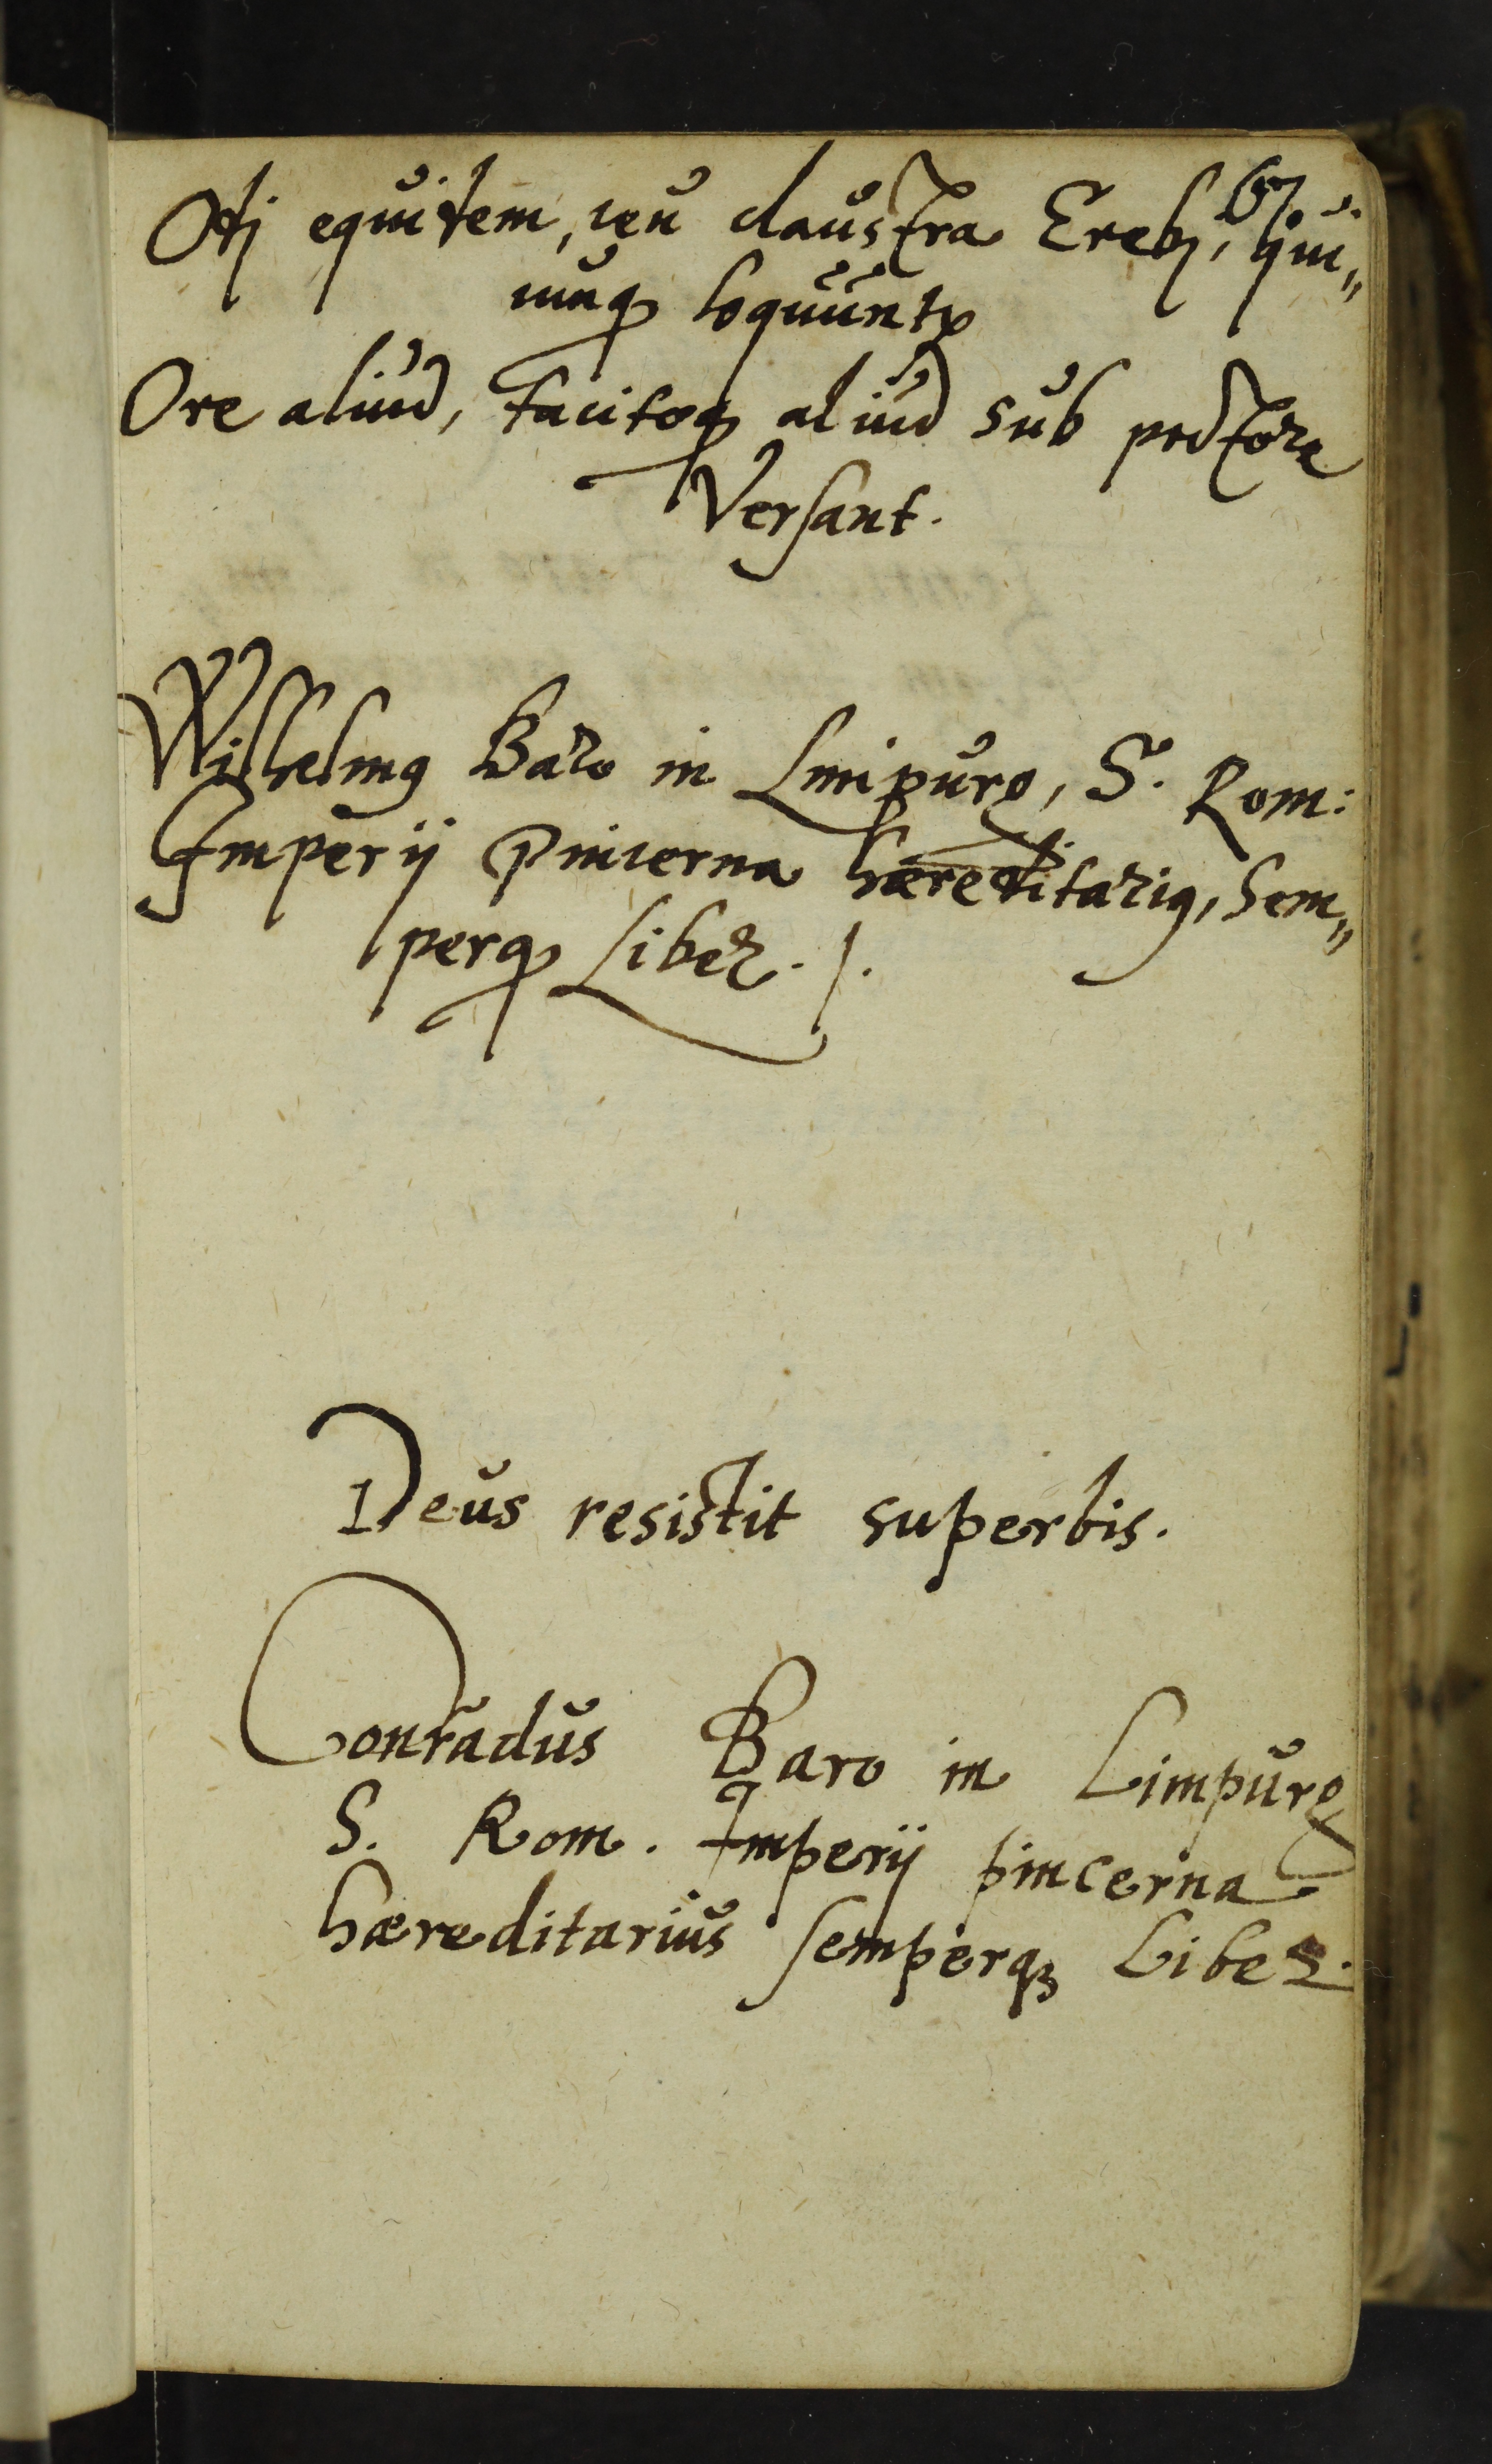 67.
Odi equitem, ceu claustra Erebj, qui„
cunqꝫ loquuntr
Ore aliud, tacitoqꝫ aliud sub pectore
Versant.
Wilhelmꝰ Baro in Limpurg, S. Rom:
Imperij Pincerna hæreditariꝰ, Sem„
perqꝫ Liber. /.
Deus resistit superbis.
Conradus Baro in Limpurg
S. Rom. Imperij pincerna
hæreditarius semperqꝫ Liber.